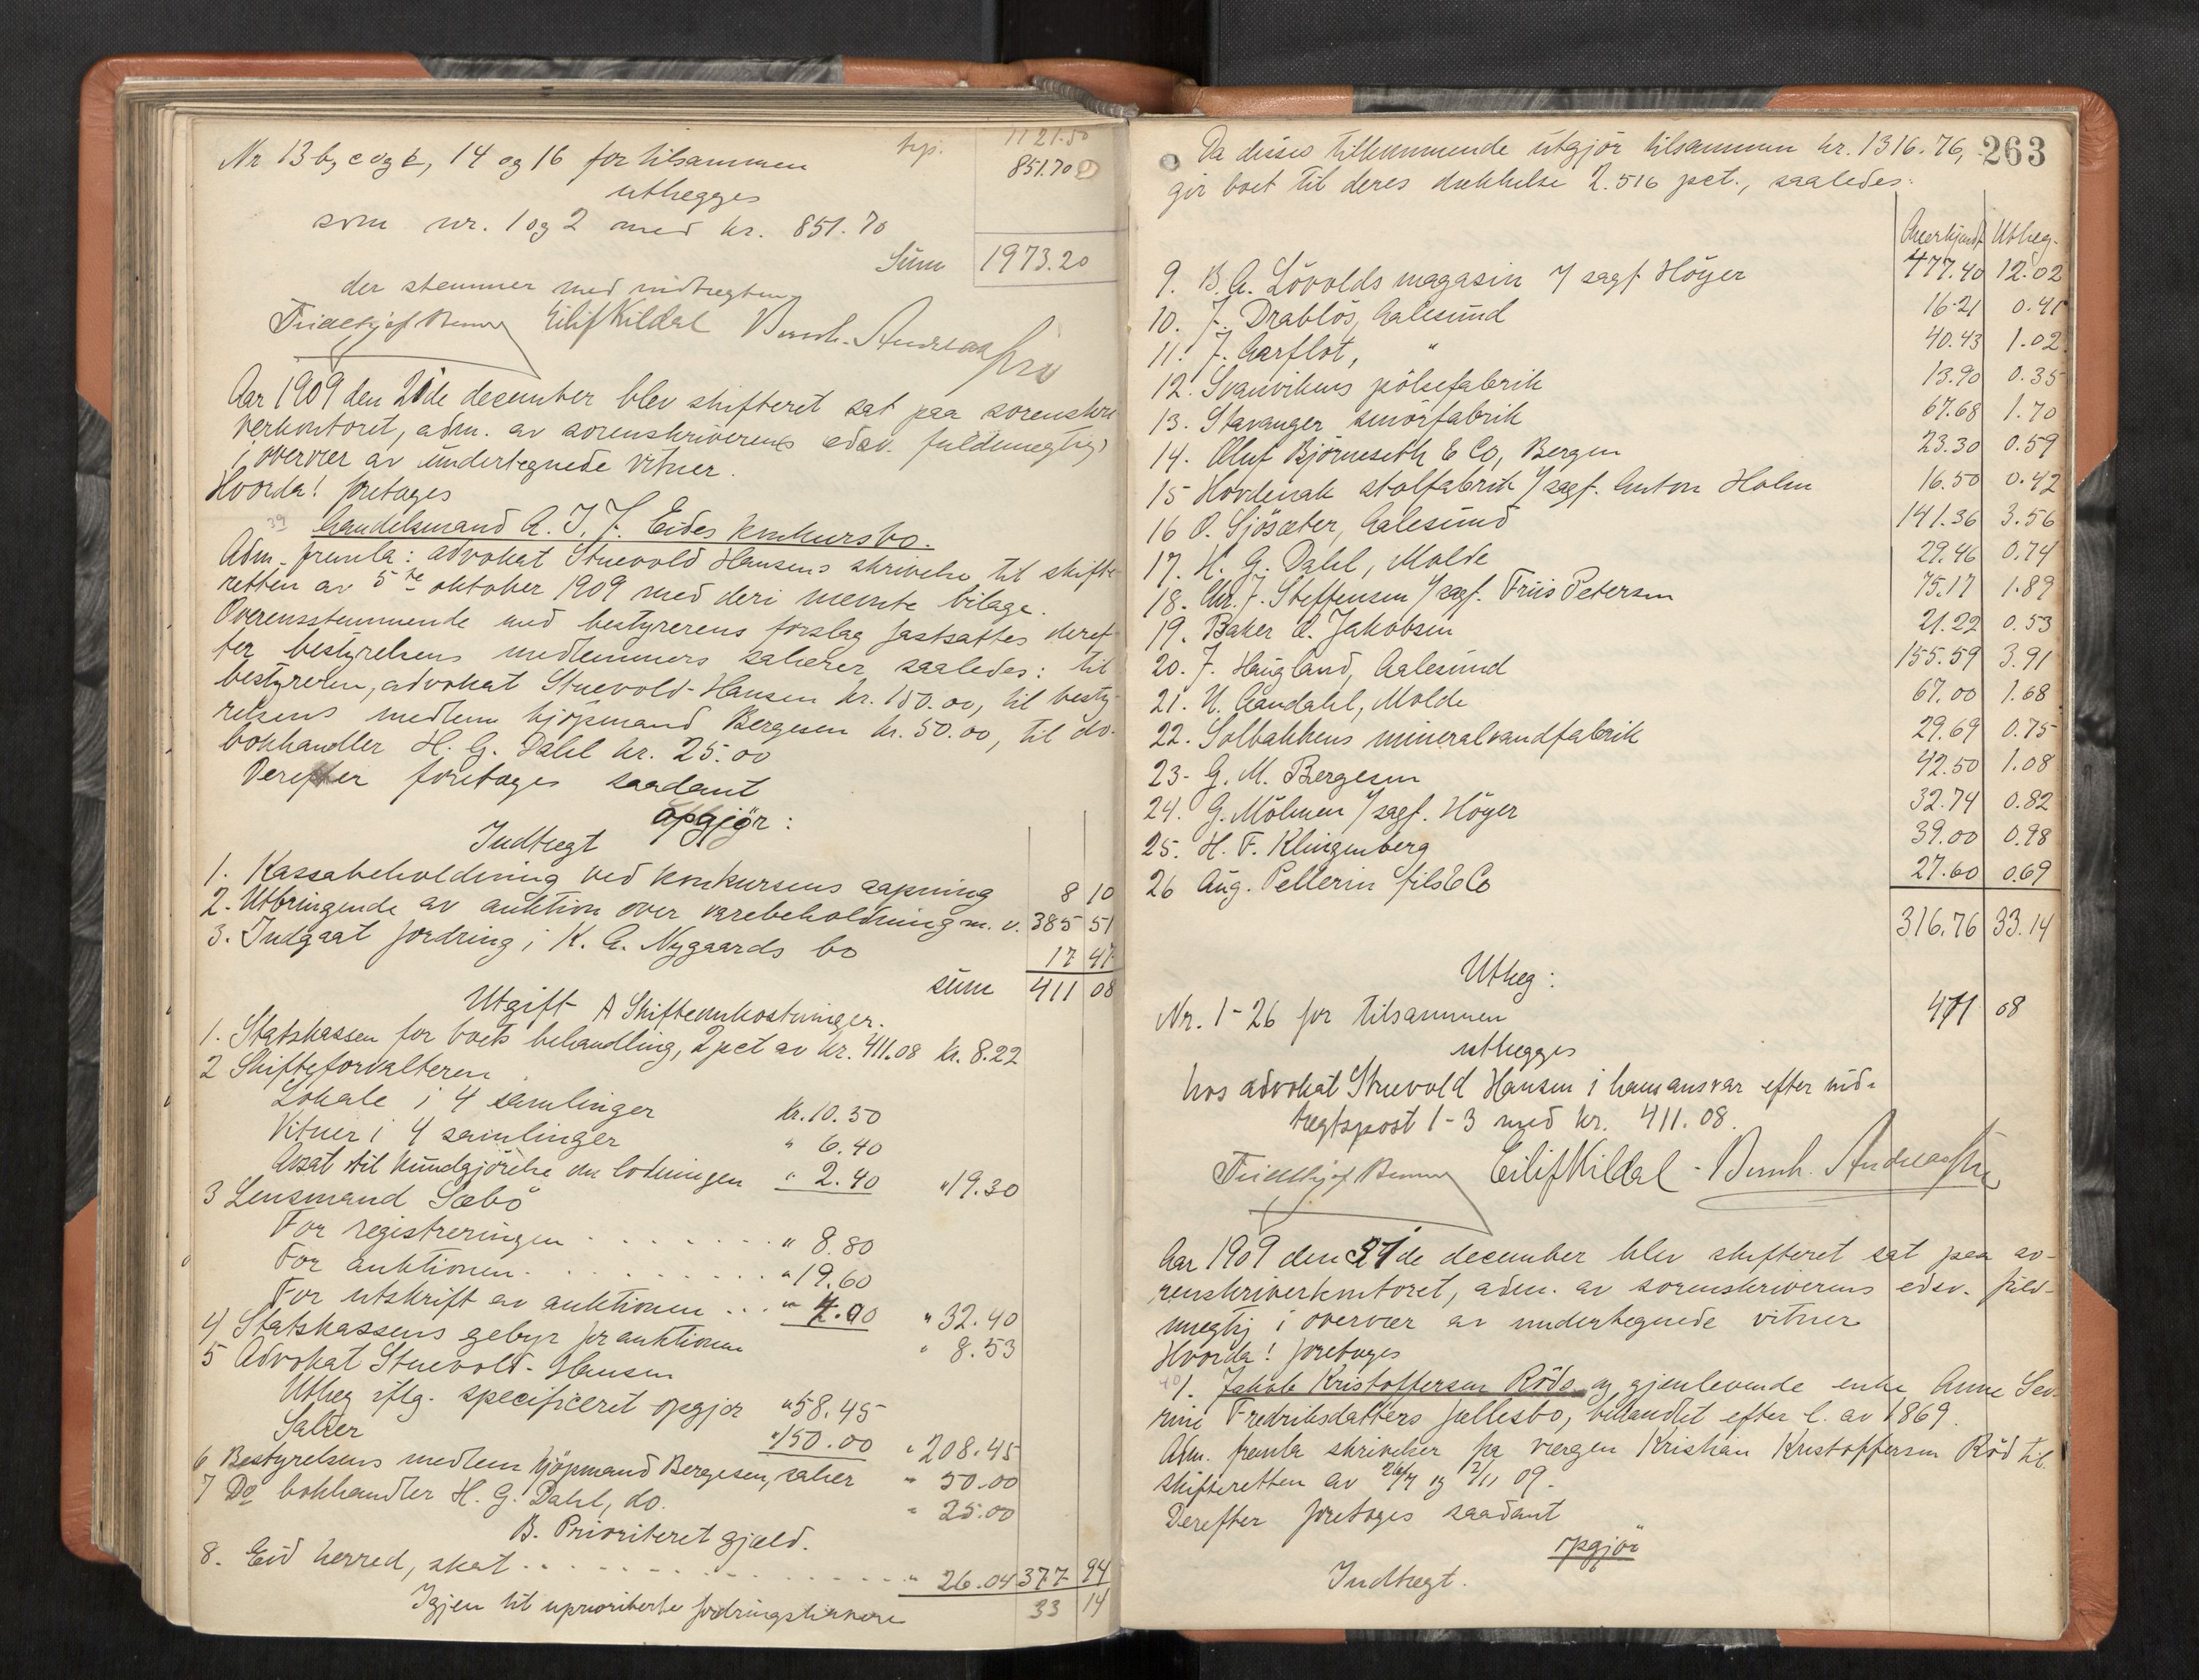 trp. 1121.50
Nr 13 b, c og e, 14 og 16 for tilsammen 851.70
utlægges
som nr. 1 og 2 med kr. 851.70
Sum 1973.20
der stemmer med indtægten
Eilif Kildal Bernh. Andreassen
Aar 1909 den 21de december blev skifteret sat paa sorenskri-
verkontoret, adm. av sorenskriverens edsv. fuldmegtig
i overvær av undertegnede vitner.
Hvorda! foretages
39 handelsmand A. J. F. Eides konkursbo.
Adm. fremla: advokat Struevold Hansens skrivelse til skifte-
retten av 5te oktober 1909 med deri nævnte bilage.
Overensstemmende med bestyrerens forslag fastsattes deref-
ter bestyrelsens medlemmers salærer saaledes: til
bestyreren, advokat Struevold-Hansen kr. 150.00, til besty-
relsens medlem kjøpmand Bergesen kr. 50.00, til do.
bokhandler H. G. Dahl kr. 25.00
Derefter foretages saadant
opgjør:
Indtægt
1. Kassabeholdning ved konkursens aapning 8 10
2. Utbringende av auktion over varebeholdning m. v. 385 51
3. Indgaat fordring i K. A. Nygaards bo 17 47
sum 411 08
Utgift A Skifteomkostninger.
1. Statskassen for boets behandling, 2 pct av kr. 411.08 kr. 8.22
2 Skifteforvalteren
Lokale i 4 samlinger kr. 10.50
Vitner i 4 samlinger " 6.40
Avsat til kundgjørelse om lodningen " 2.40 " 19.30
3 Lensmand Sæbø
For registreringen " 8.80
For auktionen " 19.60
For utskrift av auktionen " 4.00 " 32.40
4 Statskassens gebyr for auktionen " 8.53
5 Advokat Struevold-Hansen
Utlæg iflg. specificeret opgjør " 58.45
Salær " 150.00 " 208.45
6 Bestyrelsens medlem kjøpmand Bergesen, salær " 50.00
7 Do bokhandler H. G. Dahl, do. " 25.00
B. Prioriteret gjæld.
8. Eid herred, skat " 26.04 377 94
Igjen til uprioriterte fordringshavere 33 14
263
Da disses tilkommende utgjør tilsammen kr. 1316.76,
gir boet til deres dækkelse 2.516 pct., saaledes:
Anerkjendt Utlæg
9. B. A. Løvolds magasin v/ sagf. Höyer 477.40 12.02
10. J. Drabløs, Aalesund 16.21 0.41
11. J. Aarflot, " 40.43 1.02
12. Svanvikens pølsefabrik 13.90 0.35
13. Stavanger smørfabrik 67.68 1.70
14. Oluf Bjørneseth & Co, Bergen 23.30 0.59
15 Hovdenak stolfabrik v/ sagf. Anton Holm 16.50 0.42
16 O. Sjøsæter, Aalesund 141.36 3.56
17. H. G. Dahl, Molde 29.46 0.74
18. Chr. J. Steffensen v/ sagf. Friis Petersen 75.17 1.89
19. Baker O. Jakobsen 21.22 0.53
20. J. Haugland, Aalesund 155.59 3.91
21. N. Aandahl, Molde 67.00 1.68
22. Solbakkens mineralvandfabrik 29.69 0.75
23. G. M. Bergesen 42.50 1.08
24. G. Mölmen v/ sagf. Höyer 32.74 0.82
25. H. F. Klingenberg 39.00 0.98
26 Aug. Pellerin fils & Co 27.60 0.69
316.76 33.14
Utlæg:
Nr. 1-26 for tilsammen 411 08
utlægges
hos advokat Struevold Hansen i hans ansvar efter ind-
tægtspost 1-3 med kr. 411.08.
Eilif Kildal - Bernh. Andreassen
Aar 1909 den 21de december blev skifteret sat paa so-
renskriverkontoret, adm. av sorenskriverens edsv. fuld-
mægtig i overvær av undertegnede vitner
Hvorda! foretages
40 1. Jakob Kristoffersen Röds og gjenlevende enke Anne Sev-
rine Fredriksdatters fællesbo, behandlet efter l. av 1869.
Adm. fremla skrivelser fra værgen Kristian Kristoffersen Röd til
skifteretten av 26/7 og 2/11 09.
Derefter foretages saadant
opgjör
Indtægt.